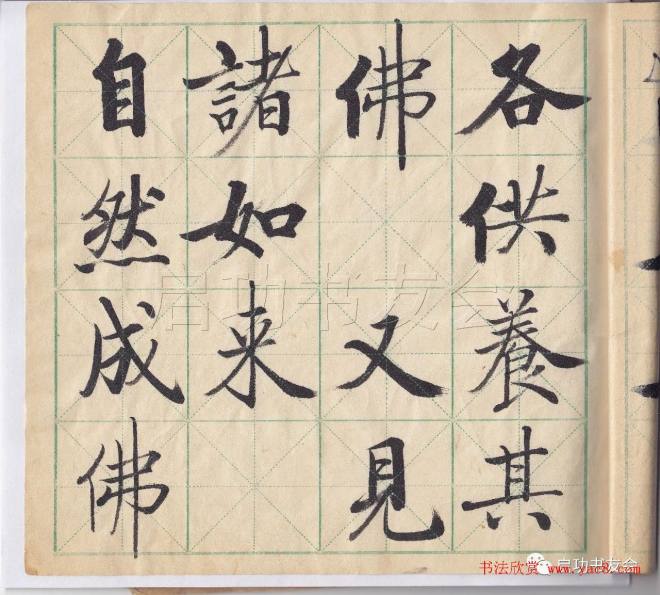 各供養其
佛 又見
諸如来
自然成佛
启功书友会
书法欣赏 www.yac8.com
启功书友会